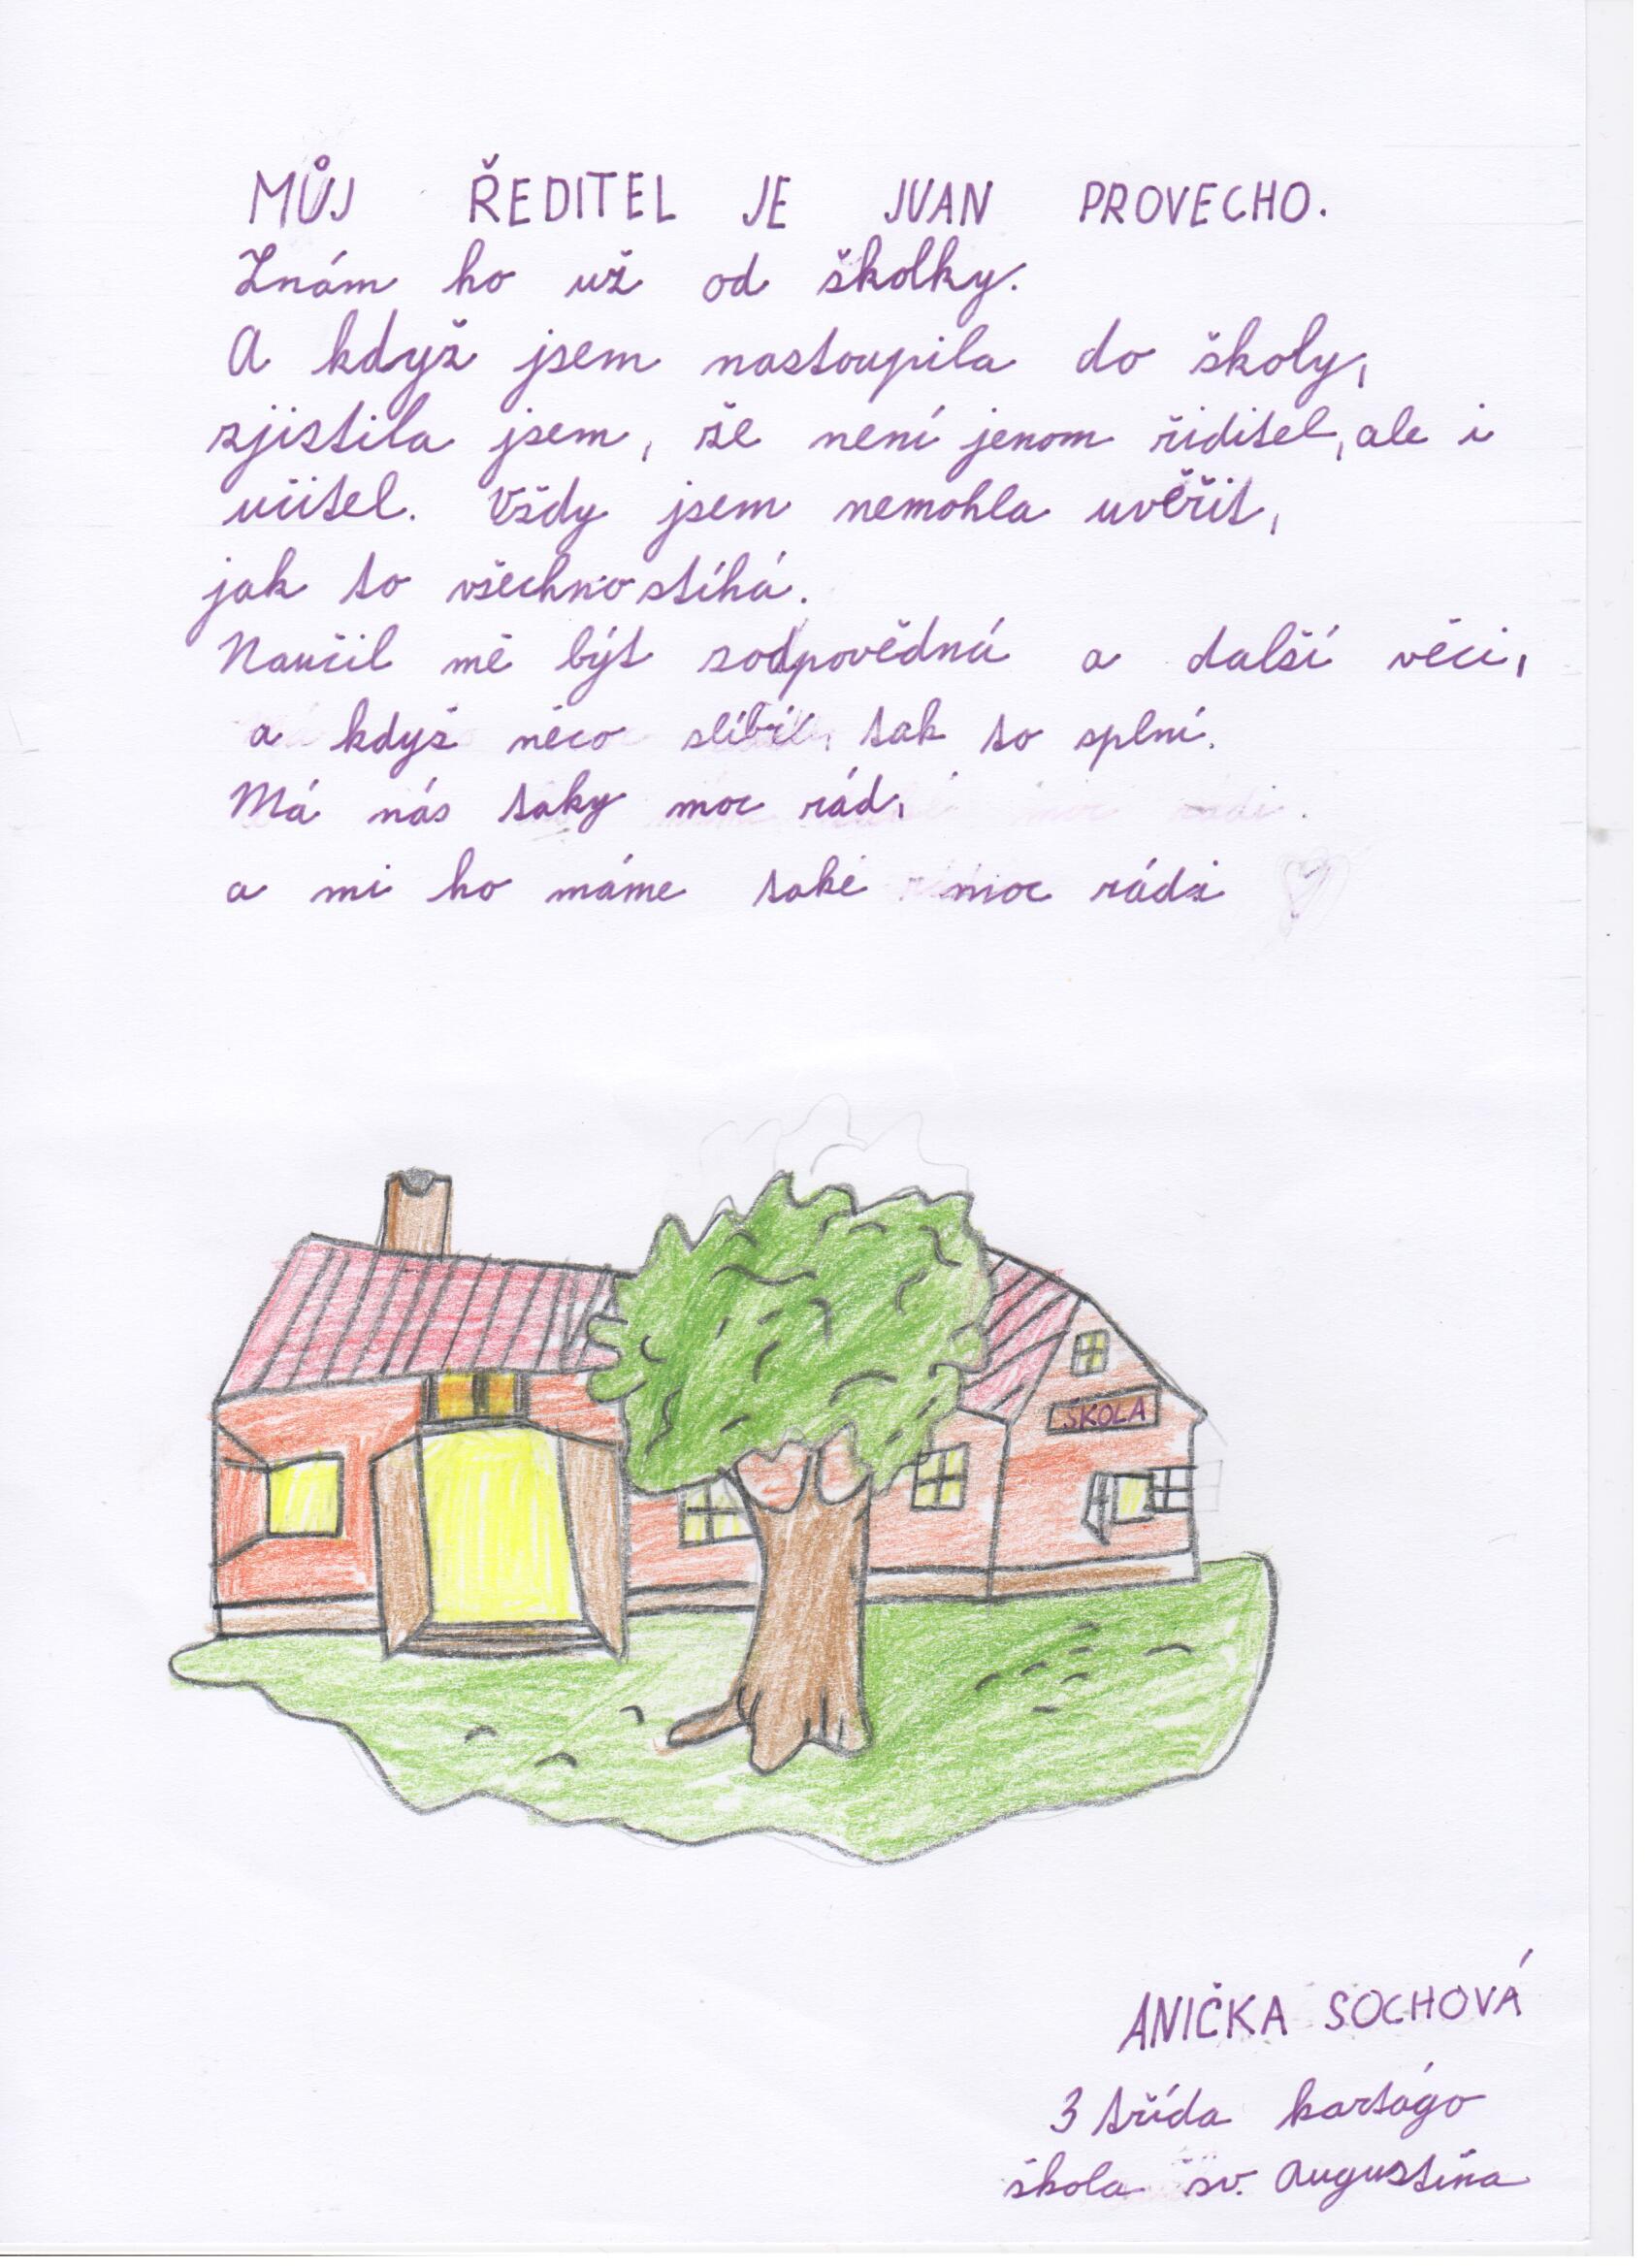 MŮJ ŘEDITEL JE IVAN PROVECHO.
Znám ho už od školky.
A když jsem nastoupila do školy,
zjistila jsem, že není jenom řiditel, ale i
učitel. Vždy jsem nemohla uvěřit,
jak to všechno stíhá.
Naučil mě být zodpovědná a další věci,
a když něco slíbil, tak to splní.
Má nás taky moc rád,
a mi ho máme také moc rádi
ŠKOLA
ANIČKA SOCHOVÁ
3 třída kartágo
škola sv. Augustina